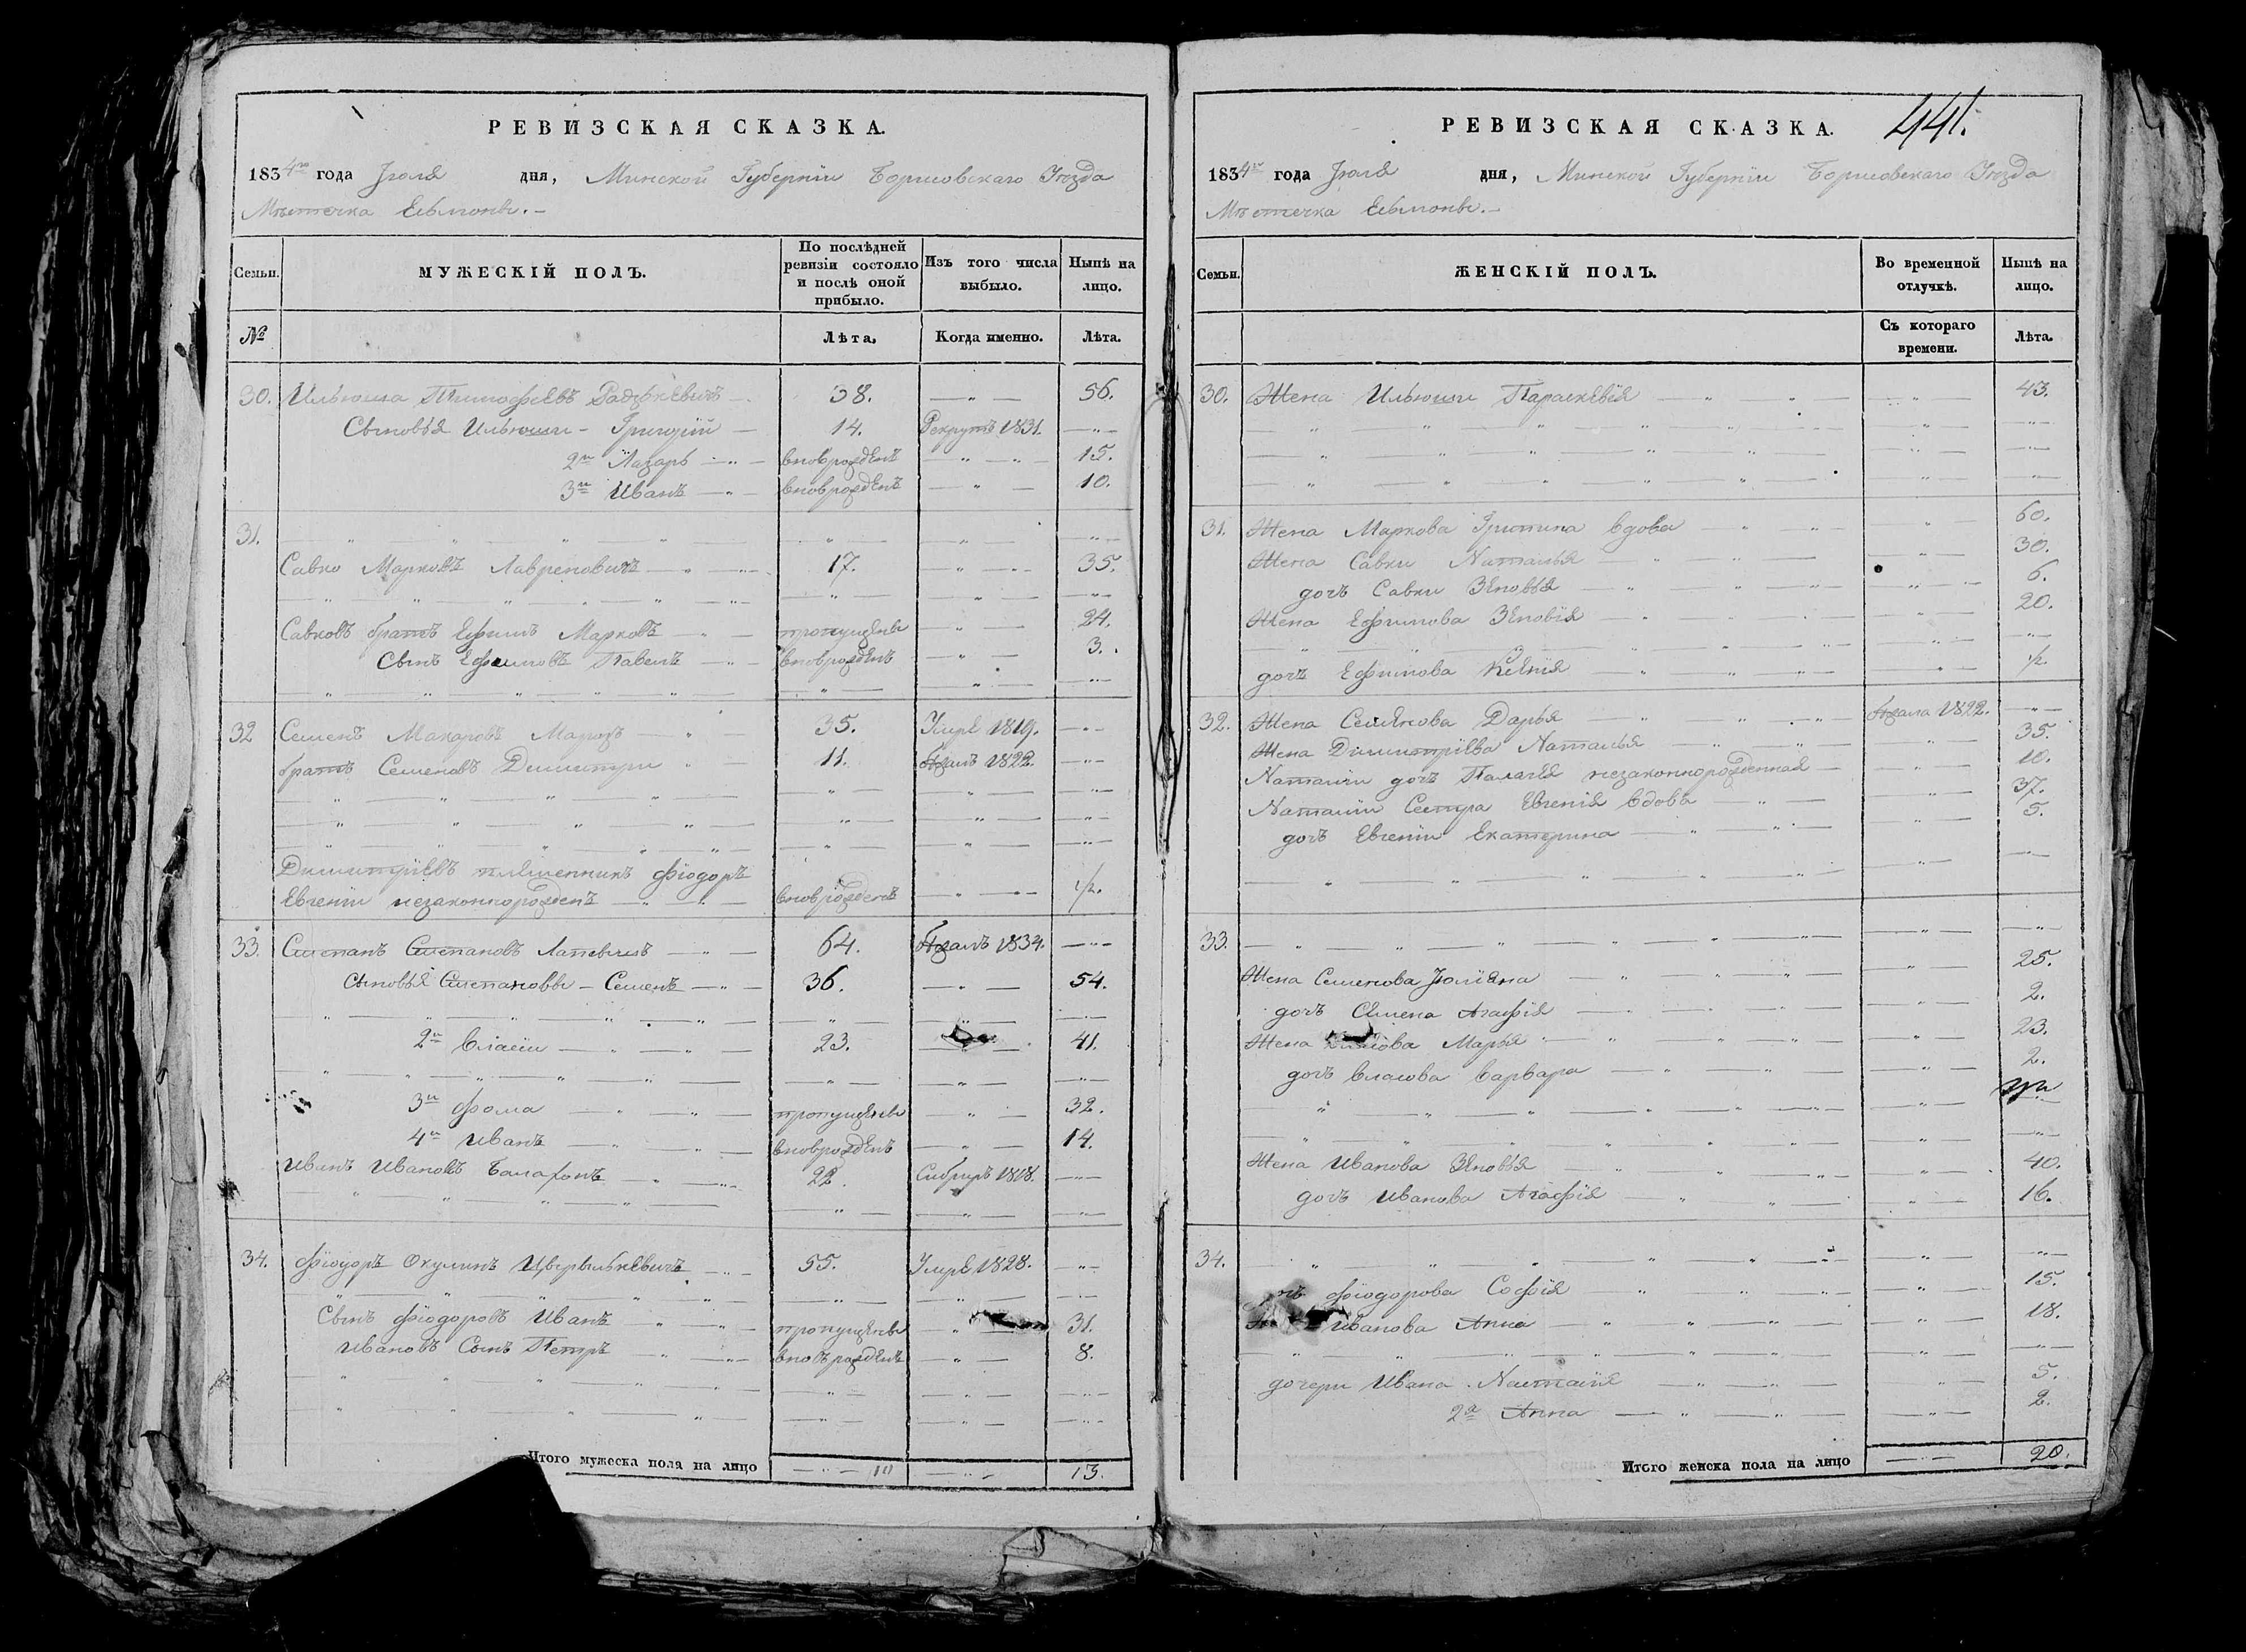 РЕВИЗСКАЯ СКАЗКА.
1834го года Іюля дня, Минской Губерніи Борисовскаго Уѣзда
Мѣстечка Есьмонъ.
Семьи. МУЖЕСКІЙ ПОЛЪ. По послѣдней ревизіи состояло и послѣ оной прибыло. Изъ того числа выбыло. Нынѣ на лицо.
№ Лѣта. Когда именно. Лѣта.
30. Ильюша Тимофеевъ Радзкевичъ 38. 56.
Сыновья Ильюши - Григорій 14. Рекрутъ 1831.
2й Лазарь вновьрожденъ 15.
3й Иванъ вновьрожденъ 10.
31.
Савко Марковъ Лавреновичъ 17. 35.
Савковъ братъ Ефимъ Марковъ пропущенъ 24.
Сынъ Ефимовъ Павелъ вновьрожденъ 3.
32 Семенъ Макаровъ Марозъ 35. Умре 1819.
братъ Семеновъ Димитри 11. 1822.
Димитріевъ племенникъ Фіодоръ
Евгеніи незаконнорожденъ вновьрожденъ ½.
33. Степанъ Степановъ 64. 1834.
Сыновья Степановы - Семенъ 36. 54.
2й Власіи 23. 41.
3й Фома пропущенъ 32.
4й Иванъ вновьрожденъ 14.
Иванъ Ивановъ 22. Сибирь 1818.
34. Фіодоръ Окулинъ 55. Умре 1828.
Сынъ Фіодоровъ Иванъ пропущенъ 31.
Ивановъ Сынъ Петръ вновьрожденъ 8.
Итого мужеска пола на лицо 10 13.
РЕВИЗСКАЯ СКАЗКА. 441.
1834го года Іюля дня, Минской Губерніи Борисовскаго Уѣзда
Мѣстечка Есьмонъ.
Семьи. ЖЕНСКІЙ ПОЛЪ. Во временной отлучкѣ. Нынѣ на лицо.
Съ котораго времени. Лѣта.
30. Жена Ильюши Параскевія 43.
31. Жена Маркова вдова 60.
Жена Савки Наталья 30.
дочъ Савки Зѣновья 6.
Жена Ефимова Зѣновія 20.
дочъ Ефимова Ксенія ½.
32. Жена Семенова Дарья 1822.
Жена Димитріева Наталья 35.
Наталіи дочъ Палагея незаконнорожденная 10.
Наталіи Сестра Евгенія вдова 37.
дочъ Евгеніи Екатерина 5.
33.
Жена Семенова Юліяна 25.
дочъ Семена Агафія 2.
Жена Марья 23.
дочъ Власова Варвара 2.
Жена Иванова Зѣновья 40.
дочъ Иванова Агафія 16.
34.
Фіодорова Софія 15.
Иванова Анна 18.
дочери Ивана Настасія 5.
2я Анна 2.
Итого женска пола на лицо 20.